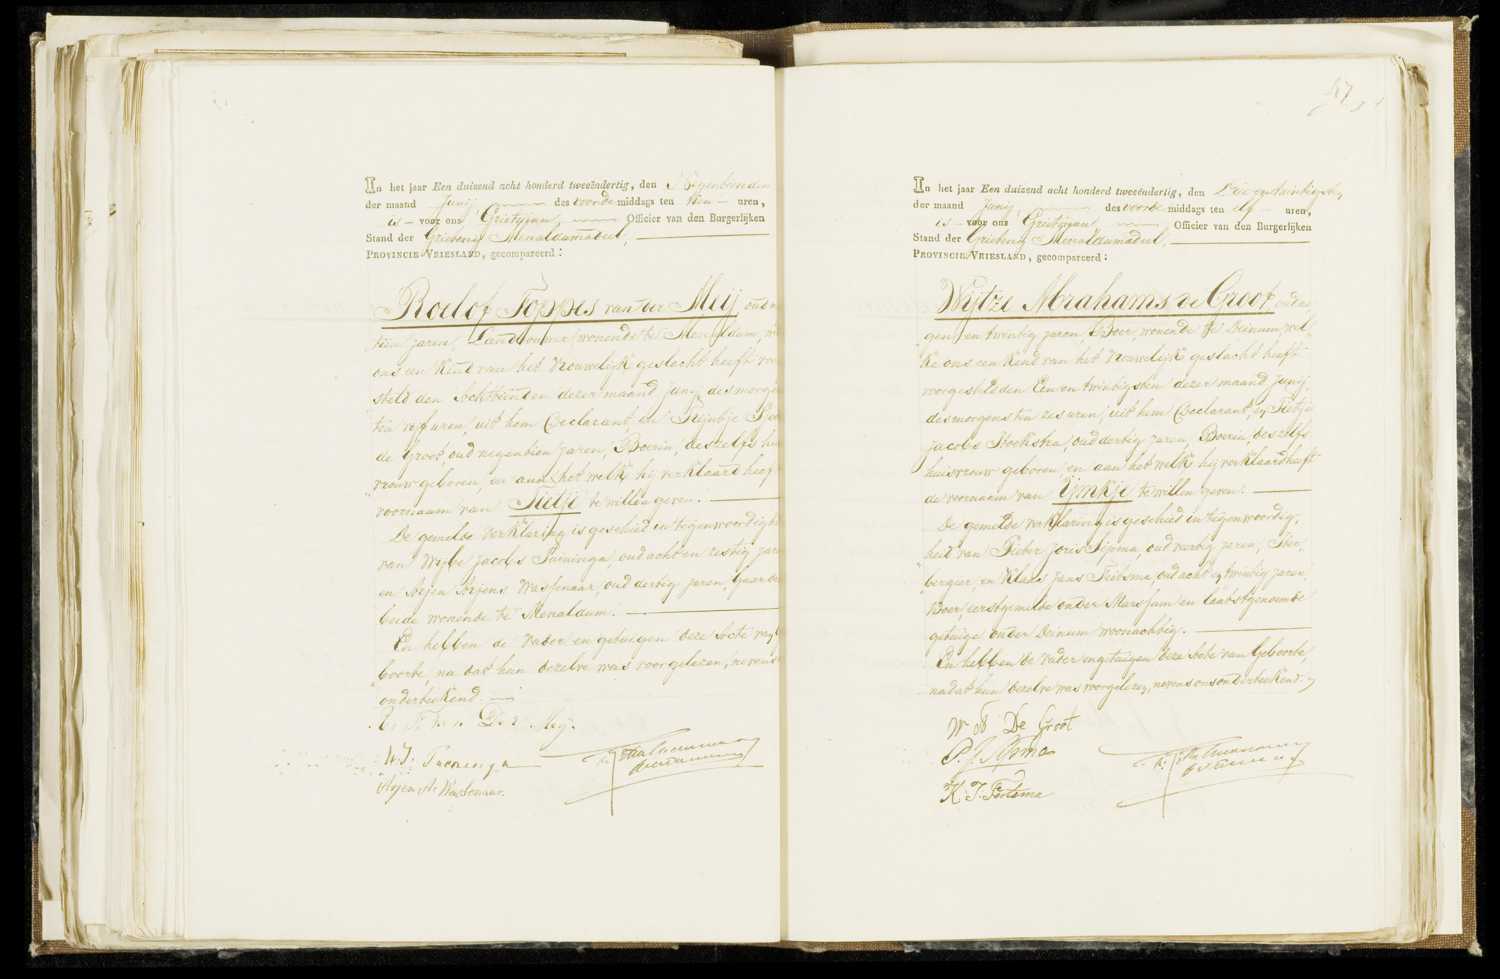 In het jaar Een duizend acht honderd tweeëndertig, den Negentienden
der maand Junij, des voorde middags ten tien uren,
is voor ons Grietman, Officier van den Burgerlijken
Stand der Grietenij Menaldumadeel,
PROVINCIE VRIESLAND, gecompareerd:
Roelof Toppes van der Meij oud
tien jaren, Landbouwer wonende te Menaldum,
ons een Kind van het Vrouwelijk geslacht heeft
steld den Achttienden dezer maand Junij des
ten vijf uren, uit hem Declarant, en Trijntje
de Groot, oud negentien jaren, Boerin, deszelfs
vrouw geboren, en aan het welk hij verklaard heeft
voornaam van Tietje te willen geven.
De gemelde verklaring is geschied in
van Wijbe Jacobs Tuininga, oud achten zestig
en Arjen Arjens Wassenaar, oud dertig jaren,
beide wonende te Menaldum.
En hebben de vader en getuigen deze Acte van
boorte, na dat hun dezelve was voorgelezen, nevens
onderteekend.
R. T. van Der Meij.
W J. Tuininga
Arjen A. Wassenaar.
In het jaar Een duizend acht honderd tweeëndertig, den
der maand Junij, des voorde middags ten elf uren,
is voor ons Grietman Officier van den Burgerlijken
Stand der Grietenij Menaldumadeel,
PROVINCIE VRIESLAND, gecompareerd:
Wijtze Abrahams de Groot oud
gen en twintig jaren, Boer, wonende te Deinum, wel„
ke ons een Kind van het Vrouwelijk geslacht heeft
voorgesteld den Een en twintigsten dezer maand Junij
des morgens ten zes uren, uit hem Declarant, en Tietje
Jacobs Hoekstra, oud dertig jaren, Boerin, deszelfs
huisvrouw geboren, en aan het welk hij verklaard heeft
de voornaam van Ymkje te willen geven.
De gemelde verklaring is geschied in tegenwoordig„
heid van Pieter Joris Sijpma, oud veertig jaren, Her„
bergier, en Klaas Jans Feitsma, oud acht en twintig jaren,
Boer, eerstgemelde onder Marssum en laatstgenoemde
getuige onder Deinum woonachtig.
En hebben de vader en getuigen deze Acte van Geboorte,
nadat hun dezelve was voorgelezen, nevens ons onderteekend.
W A De Groot
P. J. Sijpma
K. J. Feitsma